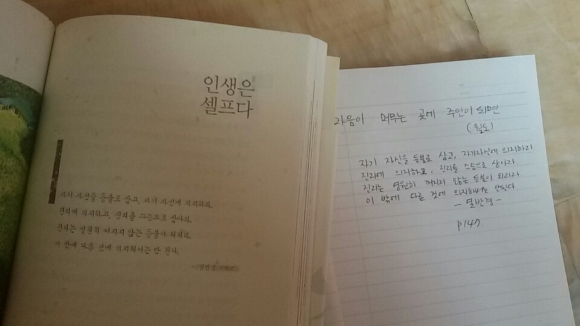 인생은
셀프다
자기 자신을 등불로 삼고, 자기 자신에 의지하라.
진리에 의지하고, 진리를 스승으로 삼아라.
진리는 영원히 꺼지지 않는 등불이 되리라.
이 밖에 다른 것에 의지해서는 안 된다.
마음이 머무는 곳에 주인이 되면
자기 자신을 등불로 삼고, 자기자신에 의지하라
진리에 의지하고, 진리를 스승으로 삼아라
진리는 영원히 꺼지지 않는 등불이 되리라
이 밖에 다른 것에 의지해서는 안된다
- 열반경 -
p147